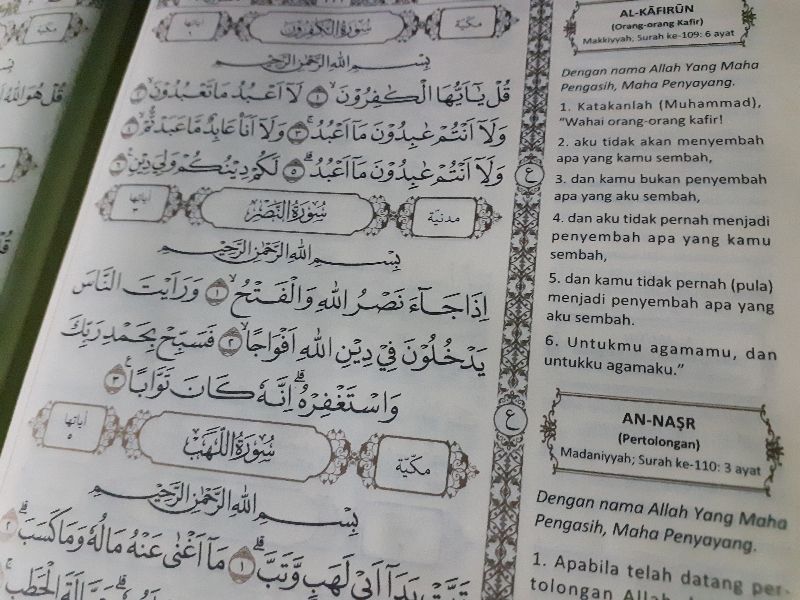 مكيّة
سُوْرَةُ الْكٰفِرُوْنَ
أياتها
بِسْمِ اللّٰهِ الرَّحْمٰنِ الرَّحِيْمِ
قُلْ يٰٓاَيُّهَا الْكٰفِرُوْنَۙ ١ لَآ اَعْبُدُ مَا تَعْبُدُوْنَۙ ٢
وَلَآ اَنْتُمْ عٰبِدُوْنَ مَآ اَعْبُدُۚ ٣ وَلَآ اَنَا۠ عَابِدٌ مَّا عَبَدْتُّمْۙ ٤
وَلَآ اَنْتُمْ عٰبِدُوْنَ مَآ اَعْبُدُۗ ٥ لَكُمْ دِيْنُكُمْ وَلِيَ دِيْنِ ٦
مدنيّة
سُوْرَةُ النَّصْرِ
أياتها
بِسْمِ اللّٰهِ الرَّحْمٰنِ الرَّحِيْمِ
اِذَا جَاۤءَ نَصْرُ اللّٰهِ وَالْفَتْحُۙ ١ وَرَاَيْتَ النَّاسَ
يَدْخُلُوْنَ فِيْ دِيْنِ اللّٰهِ اَفْوَاجًاۙ ٢ فَسَبِّحْ بِحَمْدِ رَبِّكَ
وَاسْتَغْفِرْهُۗ اِنَّهٗ كَانَ تَوَّابًا ٣
مكيّة
سُوْرَةُ اللَّهَبِ
أياتها ٥
بِسْمِ اللّٰهِ الرَّحْمٰنِ الرَّحِيْمِ
تَبَّتْ يَدَآ اَبِيْ لَهَبٍ وَّتَبَّۗ ١ مَآ اَغْنٰى عَنْهُ مَالُهٗ وَمَا كَسَبَۗ ٢
حَمَّالَةَ الْحَطَبِۚ
ع
ع
AL-KĀFIRŪN
(Orang-orang Kafir)
Makkiyyah, Surah ke-109: 6 ayat
Dengan nama Allah Yang Maha
Pengasih, Maha Penyayang.
1. Katakanlah (Muhammad),
“Wahai orang-orang kafir!
2. aku tidak akan menyembah
apa yang kamu sembah,
3. dan kamu bukan penyembah
apa yang aku sembah,
4. dan aku tidak pernah menjadi
penyembah apa yang kamu
sembah,
5. dan kamu tidak pernah (pula)
menjadi penyembah apa yang
aku sembah.
6. Untukmu agamamu, dan
untukku agamaku.”
AN-NAṢR
(Pertolongan)
Madaniyyah; Surah ke-110: 3 ayat
Dengan nama Allah Yang Maha
Pengasih, Maha Penyayang.
1. Apabila telah datang per-
tolongan Allah
مكيّة
قُلْ هُوَ اللّٰهُ